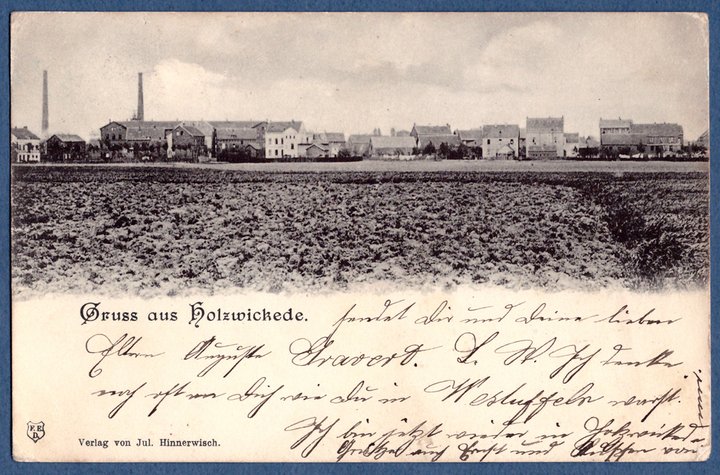 Gruss aus Holzwickede.
sendet Dir und Deine lieben
Eltern Auguste Gravert. L. W. Ich denke
noch oft an Dich wie du in warst.
Ich bin jetzt wieder in Holzwickede
Grüße auch und von
F.E.D.
Verlag von Jul. Hinnerwisch.